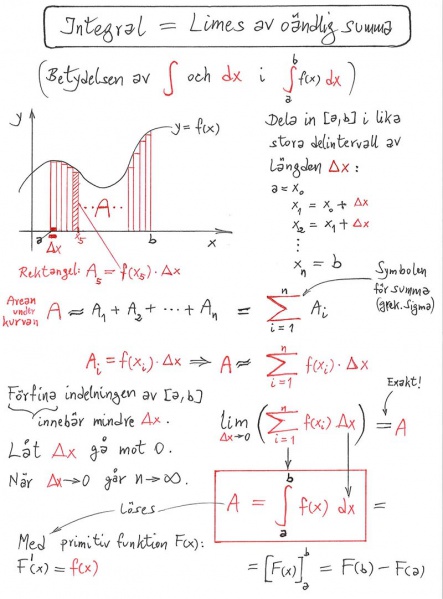 Integral = Limes av oändlig summa
(Betydelsen av ∫ och dx i ∫ₐᵇ f(x) dx)
y
y = f(x)
··A··
a
Δx
x₅
b
x
Rektangel: A₅ = f(x₅)·Δx
Dela in [a,b] i lika
stora delintervall av
längden Δx:
a = x₀
x₁ = x₀ + Δx
x₂ = x₁ + Δx
⋮
xₙ = b
Symbolen
för summa
(grek. Sigma)
Arean
under
kurvan
A ≈ A₁ + A₂ + ··· + Aₙ = ∑ᵢ₌₁ⁿ Aᵢ
Aᵢ = f(xᵢ)·Δx ⇒ A ≈ ∑ᵢ₌₁ⁿ f(xᵢ)·Δx
Förfina indelningen av [a,b]
innebär mindre Δx.
Låt Δx gå mot 0.
När Δx→0 går n→∞.
Exakt!
lim Δx→0 (∑ᵢ₌₁ⁿ f(xᵢ) Δx) = A
Löses
A = ∫ₐᵇ f(x) dx =
Med primitiv funktion F(x):
F'(x) = f(x)
= [F(x)]ₐᵇ = F(b) − F(a)